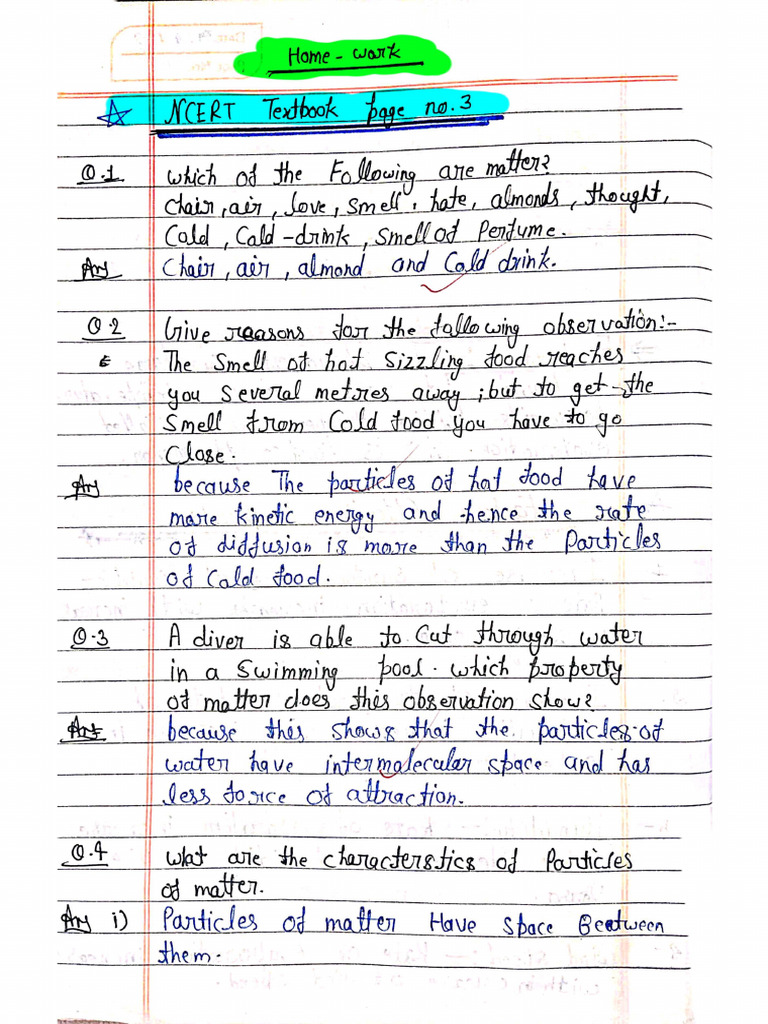 Home-work
NCERT Textbook page no.3
Q.1 which of the Following are matter?
chair, air, love, smell, hate, almonds, thought,
Cold, Cold-drink, smell of Perfume.
Ans Chair, air, almond and Cold drink.
Q.2 Give reasons for the following observation:-
The smell of hot sizzling food reaches
you several metres away; but to get the
smell from Cold food you have to go
Close.
Ans because The particles of hot food have
more kinetic energy and hence the rate
of diffusion is more than the Particles
of Cold food.
Q.3 A diver is able to Cut through water
in a swimming pool. which property
of matter does this observation show?
Ans because this shows that the particles of
water have intermolecular space and has
less force of attraction.
Q.4 What are the characterstics of Particles
of matter.
Ans i) Particles of matter Have space Beetween
them.